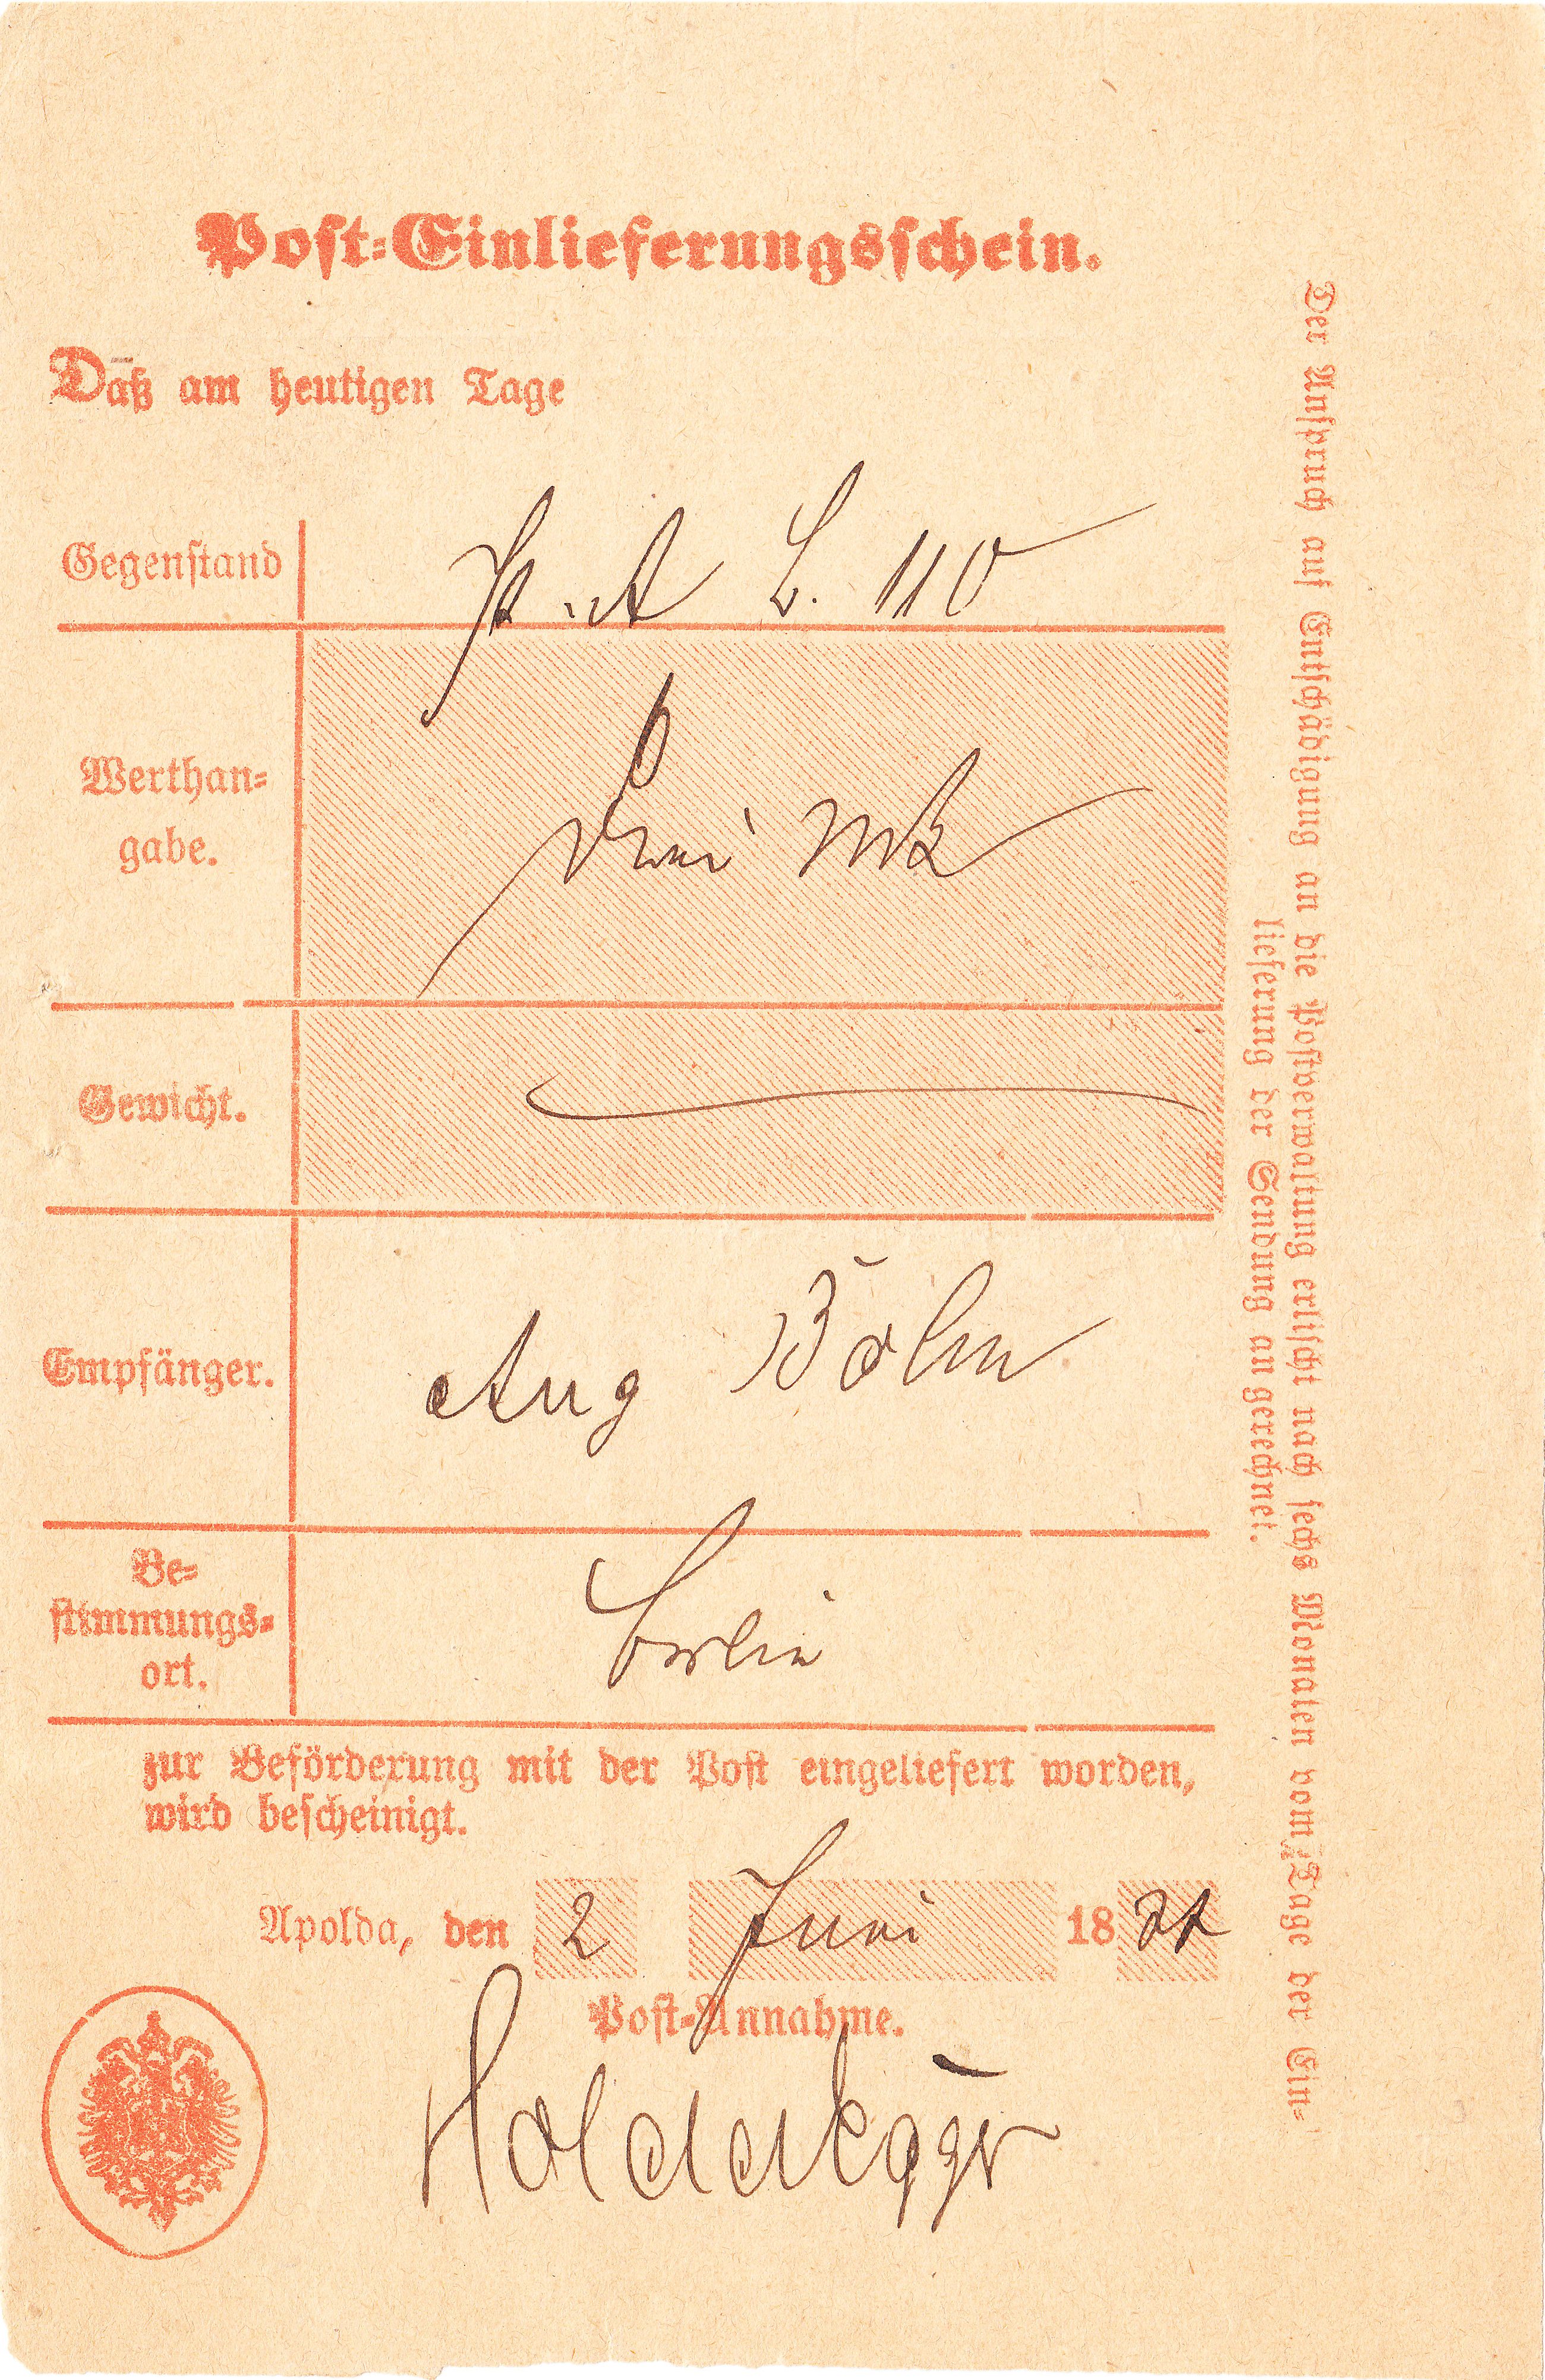 Post-Einlieferungsschein.
Daß am heutigen Tage
Gegenstand P. A L. 110
Werthan-
gabe.
Drei Mk
Gewicht.
Empfänger. Aug Böhm
Be-
stimmungs-
ort.
Berlin
zur Beförderung mit der Post eingeliefert worden,
wird bescheinigt.
Apolda, den 2 Juni 18
Post-Annahme.
Der Anspruch auf Entschädigung an die Postverwaltung erlischt nach sechs Monaten vom Tage der Ein-
lieferung der Sendung an gerechnet.